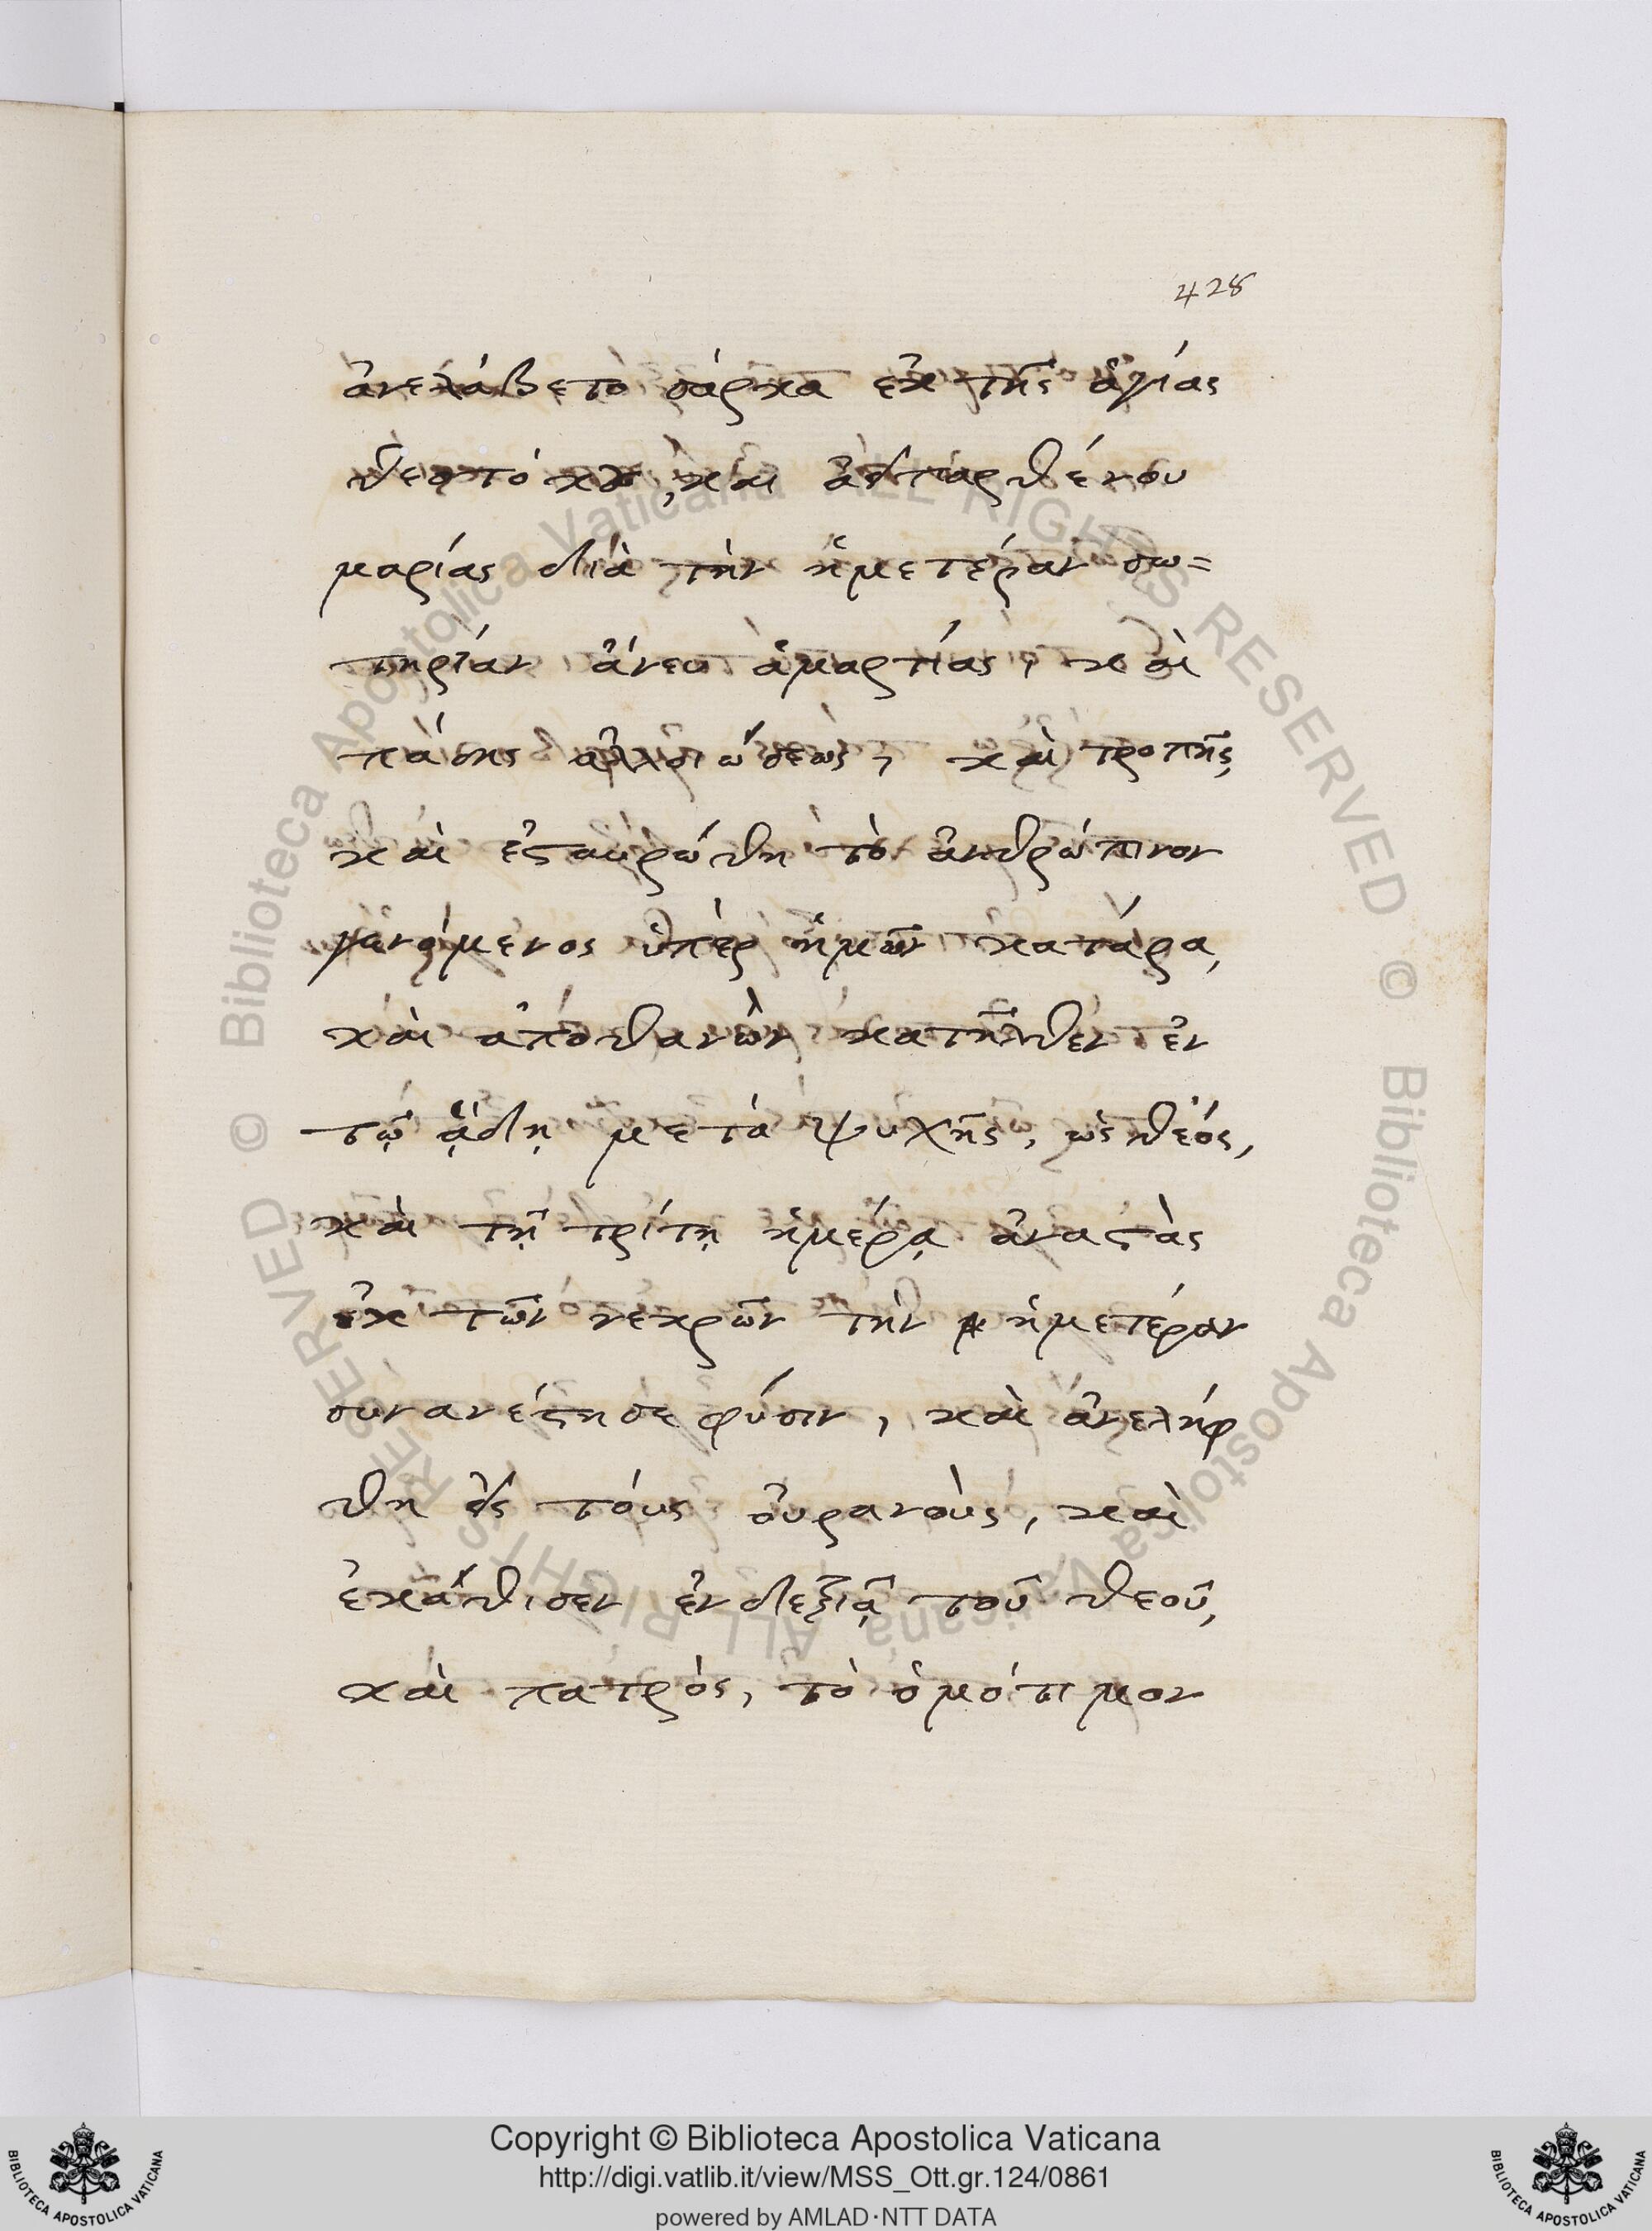 428
ἀνελάβετο σάρκα ἐκ τῆς ἁγίας
θεοτόκου, καὶ ἀειπαρθένου
μαρίας διὰ τὴν ἡμετέραν σω=
τηρίαν ἄνευ ἁμαρτίας, καὶ
πάσης ἀλλοιώσεως, καὶ τροπῆς
καὶ ἐσταυρώθη τὸ ἀνθρώπινον
γενόμενος ὑπὲρ ἡμῶν κατάρα,
καὶ ἀποθανὼν κατῆλθεν ἐν
τῷ ᾅδῃ μετὰ ψυχῆς, ὡς θεός,
καὶ τῇ τρίτῃ ἡμέρᾳ ἀναστὰς
ἐκ τῶν νεκρῶν τὴν ἡμετέραν
συνανέστησε φύσιν, καὶ ἀνελήφ
θη εἰς τοὺς οὐρανοὺς, καὶ
ἐκάθισεν ἐν δεξιᾷ τοῦ θεοῦ,
καὶ πατρός, τὸ ὁμότιμον
Biblioteca Apostolica Vaticana ALL RIGHTS RESERVED ©
Biblioteca Apostolica Vaticana ALL RIGHTS RESERVED ©
Copyright © Biblioteca Apostolica Vaticana
http://digi.vatlib.it/view/MSS_Ott.gr.124/0861
powered by AMLAD·NTT DATA
BIBLIOTECA APOSTOLICA VATICANA
BIBLIOTECA APOSTOLICA VATICANA